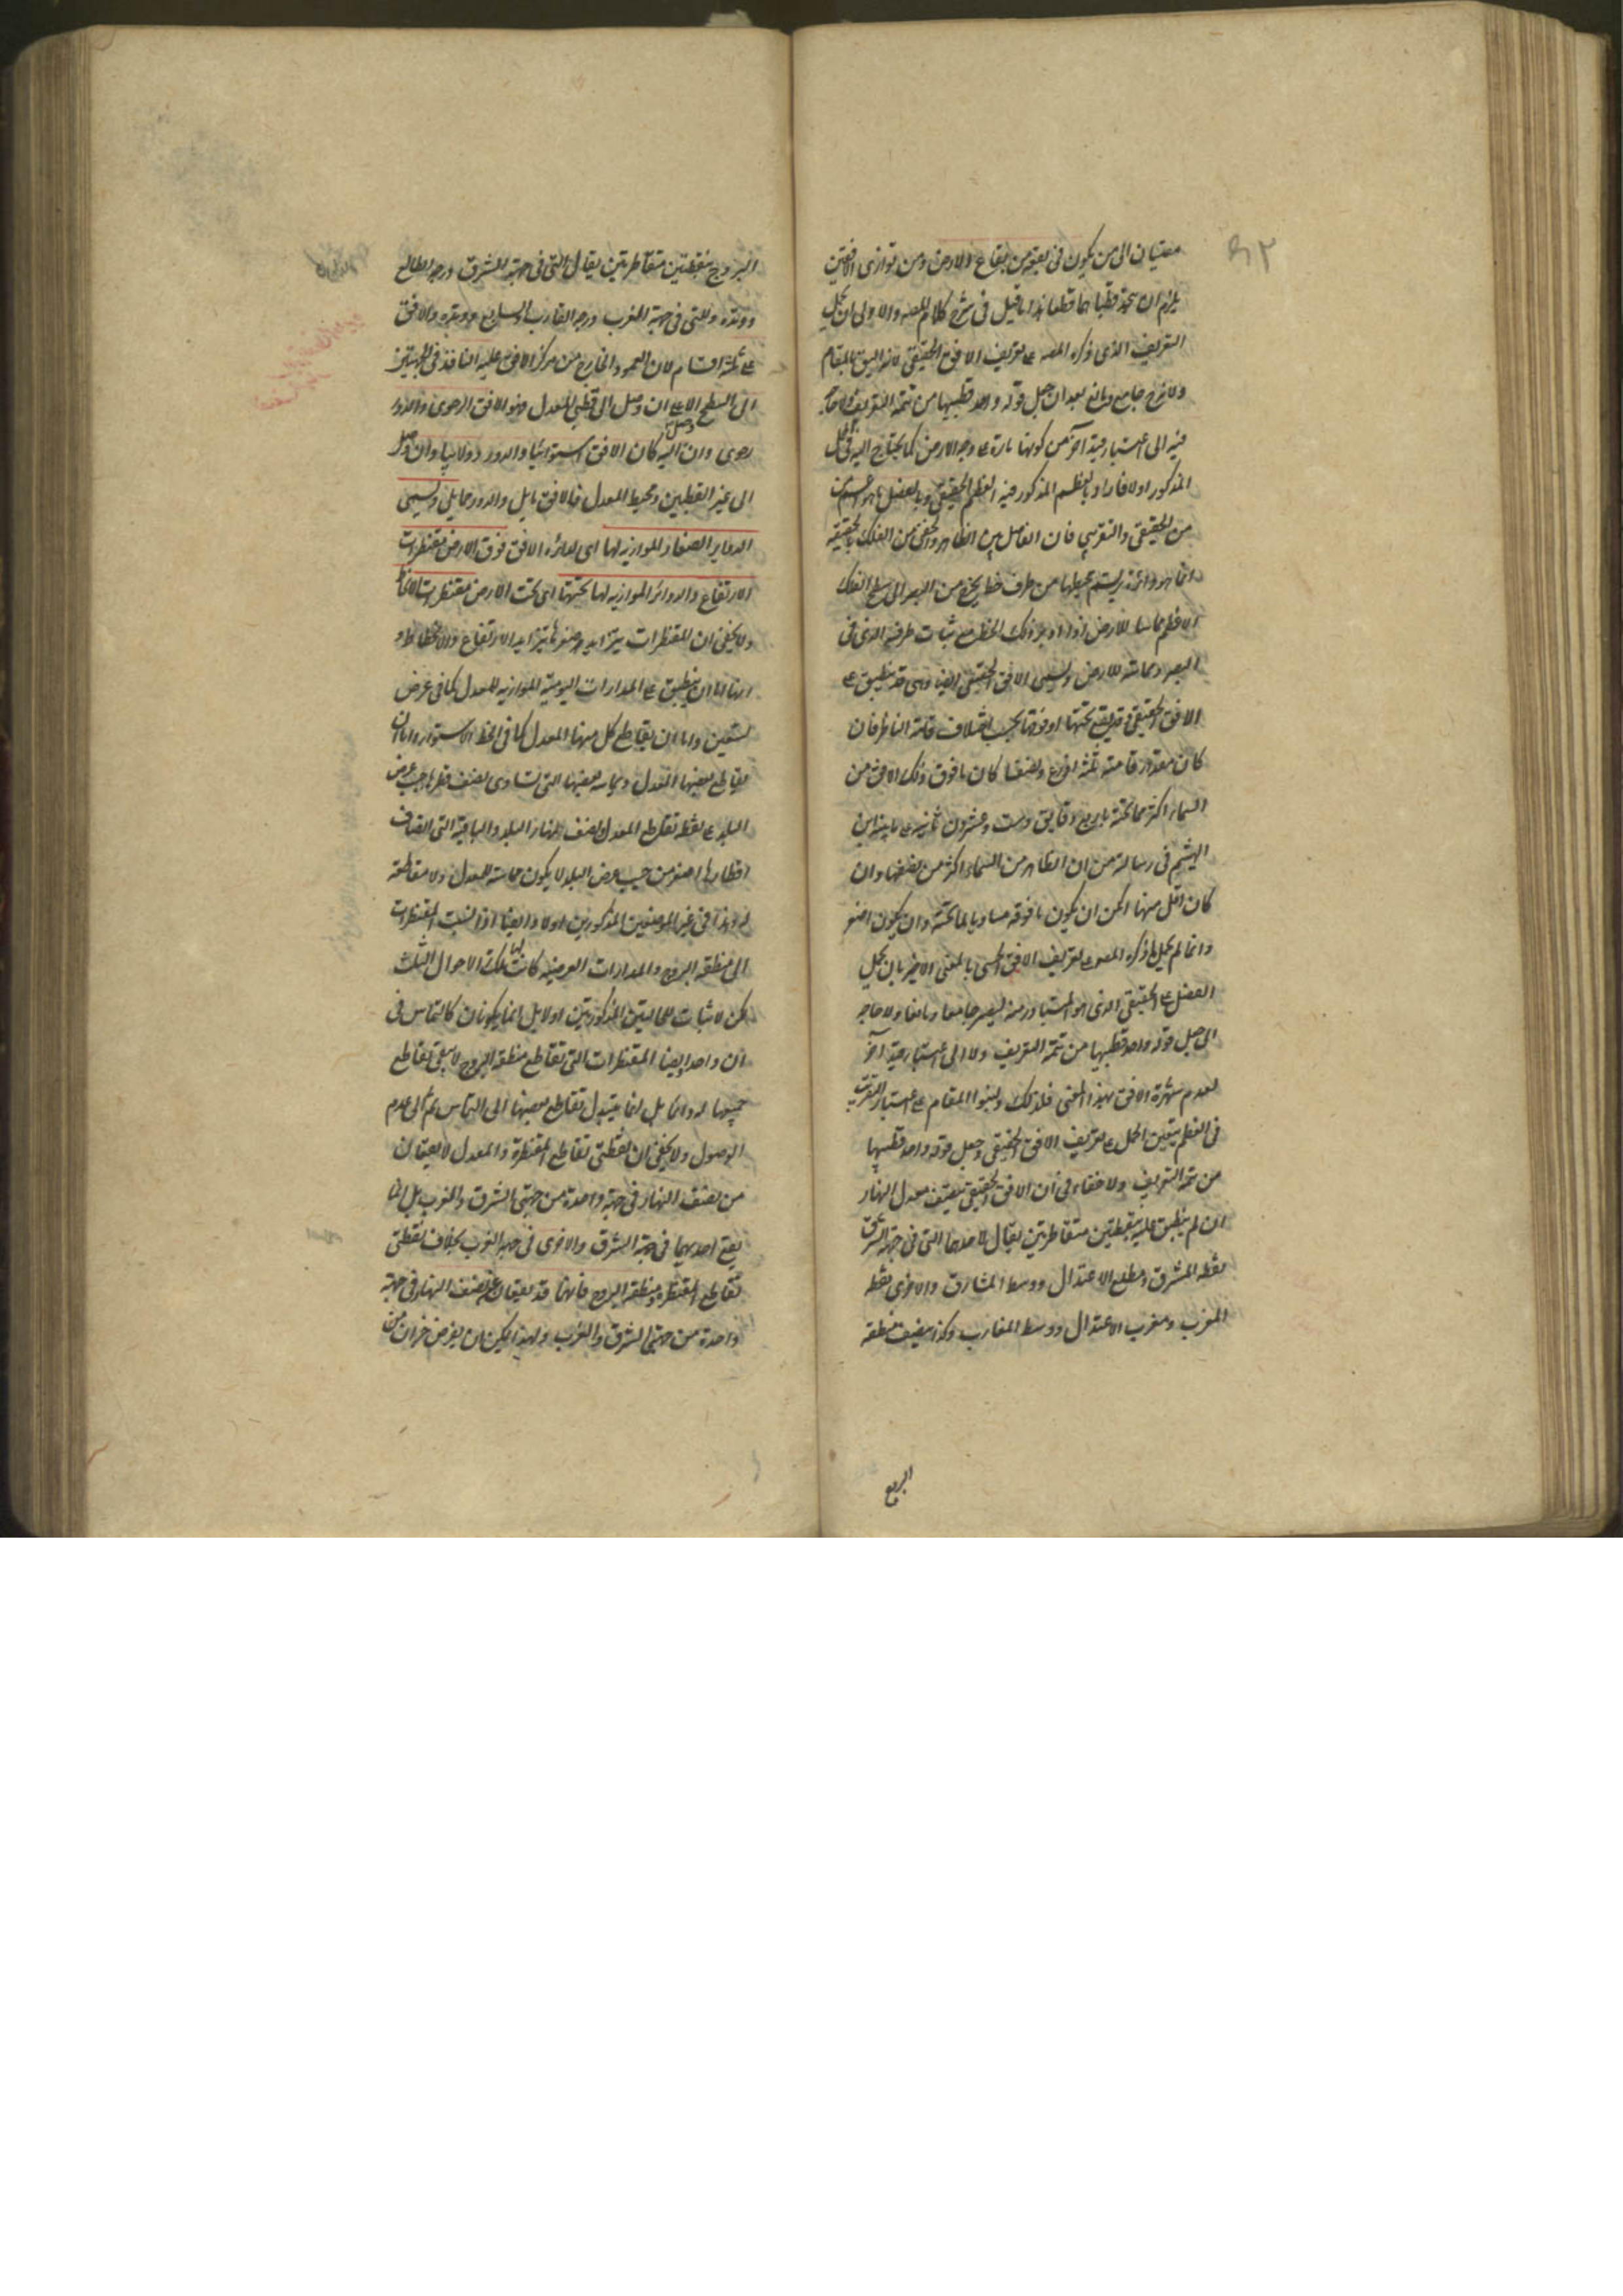 ٩٢
معتبران الى من يكون فى بقعة من بقاع الارض ومن توازى الافقين
يلزم ان يتحد قطباهما قطعا هذا ما قيل فى شرح كلام المصـ والاولى ان يحمل
التعريف الذى ذكره المصـ على تعريف الافق الحقيقى لانه اليق بالمقام
ولانه ح جامع ومانع بعد ان جعل قوله واحد قطبيها من تتمة التعريف ولا حاجة
فيه الى اعتبار قيد آخر من كونها مارة على وجه الارض كما يحتاج اليه فى الحمل
المذكور اولا فاراد بالعظم المذكور فيه العظم الحقيقى وبالفصل ما هو اعم من
من الحقيقى والتقريبى فان الفاصل بين الظاهر والخفى من الفلك بالحقيقة
انما هو دائرة يرتسم محيطها من طرف خط يخرج من البصر الى سطح الفلك
الاعظم مماسا للارض اذا ادير ذلك الخط مع ثبات طرفه الذى فى
البصر ومماسته للارض ويسمى الافق الحقيقى ايضا وهى قد تنطبق على
الافق الحقيقى وقد يقع تحتها او فوقها بحسب اختلاف قامة الناظر فان
كان مقدار قامته ثلثة اذرع ونصفا كان ما فوق ذلك الافق من
السماء اكثر مما تحته باربع دقايق وست وعشرون ثانية على ما بينه ابن
الهيثم فى رسالة من ان الظاهر من السماء اكثر من نصفها وان
كان اقل منها امكن ان يكون ما فوقه مساويا لما تحته وان يكون اصغر
وانما لم يحمل ما ذكره المصـ على تعريف الافق الحسى بالمعنى الاخير بان يحمل
الفصل على الحقيقى الذى هو المتبادر منه ليصير جامعا ومانعا ولا حاجة
الى جعل قوله واحد قطبيها من تتمة التعريف ولا الى اعتبار قيد آخر
لعدم شهرة الافق بهذا المعنى فلذلك ولنبوا المقام على اعتبار التقريب
فى العظم يتعين الحمل على تعريف الافق الحقيقى وجعل قوله واحد قطبيها
من تتمة التعريف ولا خفاء فى ان الافق الحقيقى ينصف معدل النهار
ان لم ينطبق عليه بنقطتين متقاطرتين يقال لاحدهما التى فى جهة الشرق
نقطة المشرق ومطلع الاعتدال ووسط المشارق والاخرى نقطة
المغرب ومغرب الاعتدال ووسط المغارب وكذا ينصف منطقة
البروج
البروج بنقطتين متقاطرتين يقال للتى فى جهة المشرق درجة الطالع
ووتده وللتى فى جهة المغرب درجة الغارب والسابع ووتده والافق
على ثلثة اقسام لان العمود الخارج من مركز الافق عليه النافذ فى الجهتين
الى السطح الاعلى ان وصل الى قطبى المعدل فهو الافق الرحوى والدور
رحوى وان وصل اليه كان الافق استوائيا والدور دولابيا وان وصل
الى غير القطبين ومحيط المعدل فالافق مايل والدور حمايلى ويسمى
الدواير الصغار الموازية لها اى لدائرة الافق فوق الارض مقنطرات
الارتفاع والدوائر الموازية لها تحتها اى تحت الارض مقنطرات الانحطاط
ولا يخفى ان المقنطرات يتزايد صغرها بتزايد الارتفاع والانحطاط و
انها اما ان ينطبق على المدارات اليومية الموازية للمعدل كما فى عرض
تسعين واما ان يقاطع كل منها المعدل كما فى الخط الاستواء واما ان
يقاطع بعضها المعدل ويماسه بعضها التى تساوى نصف قطرها جيب عرض
البلد على نقطة تقاطع المعدل ونصف نهار البلد والباقية التى انصاف
اقطارها اصغر من جيب عرض البلد لا يكون مماسة للمعدل ولا مقاطعة
له وهذا فى غير الموضعين المذكورين اولا وايضا اذا نسبت المقنطرات
الى منطقة البروج والمدارات العرضية كانت لها تلك الاحوال الثلث
لكن لا ثبات للحالتين المذكورتين اولا بل انما يكونان كالتماس فى
آن واحد وايضا المقنطرات التى تقاطع منطقة البروج لا يبقى تقاطع
جميعها له دائما بل انما يتبدل تقاطع بعضها الى التماس ثم الى عدم
الوصول ولا يخفى ان نقطتى تقاطع المقنطرة والمعدل لا يقعان
من نصف النهار فى جهة واحدة من جهتى الشرق والغرب بل انما
يقع احديهما فى جهة الشرق والاخرى فى جهة الغرب بخلاف نقطتى
تقاطع المقنطرة ومنطقة البروج فانهما قد يقعان عن نصف النهار فى جهة
واحدة من جهتى الشرق والغرب ولهذا يمكن ان يفرض جزآن من